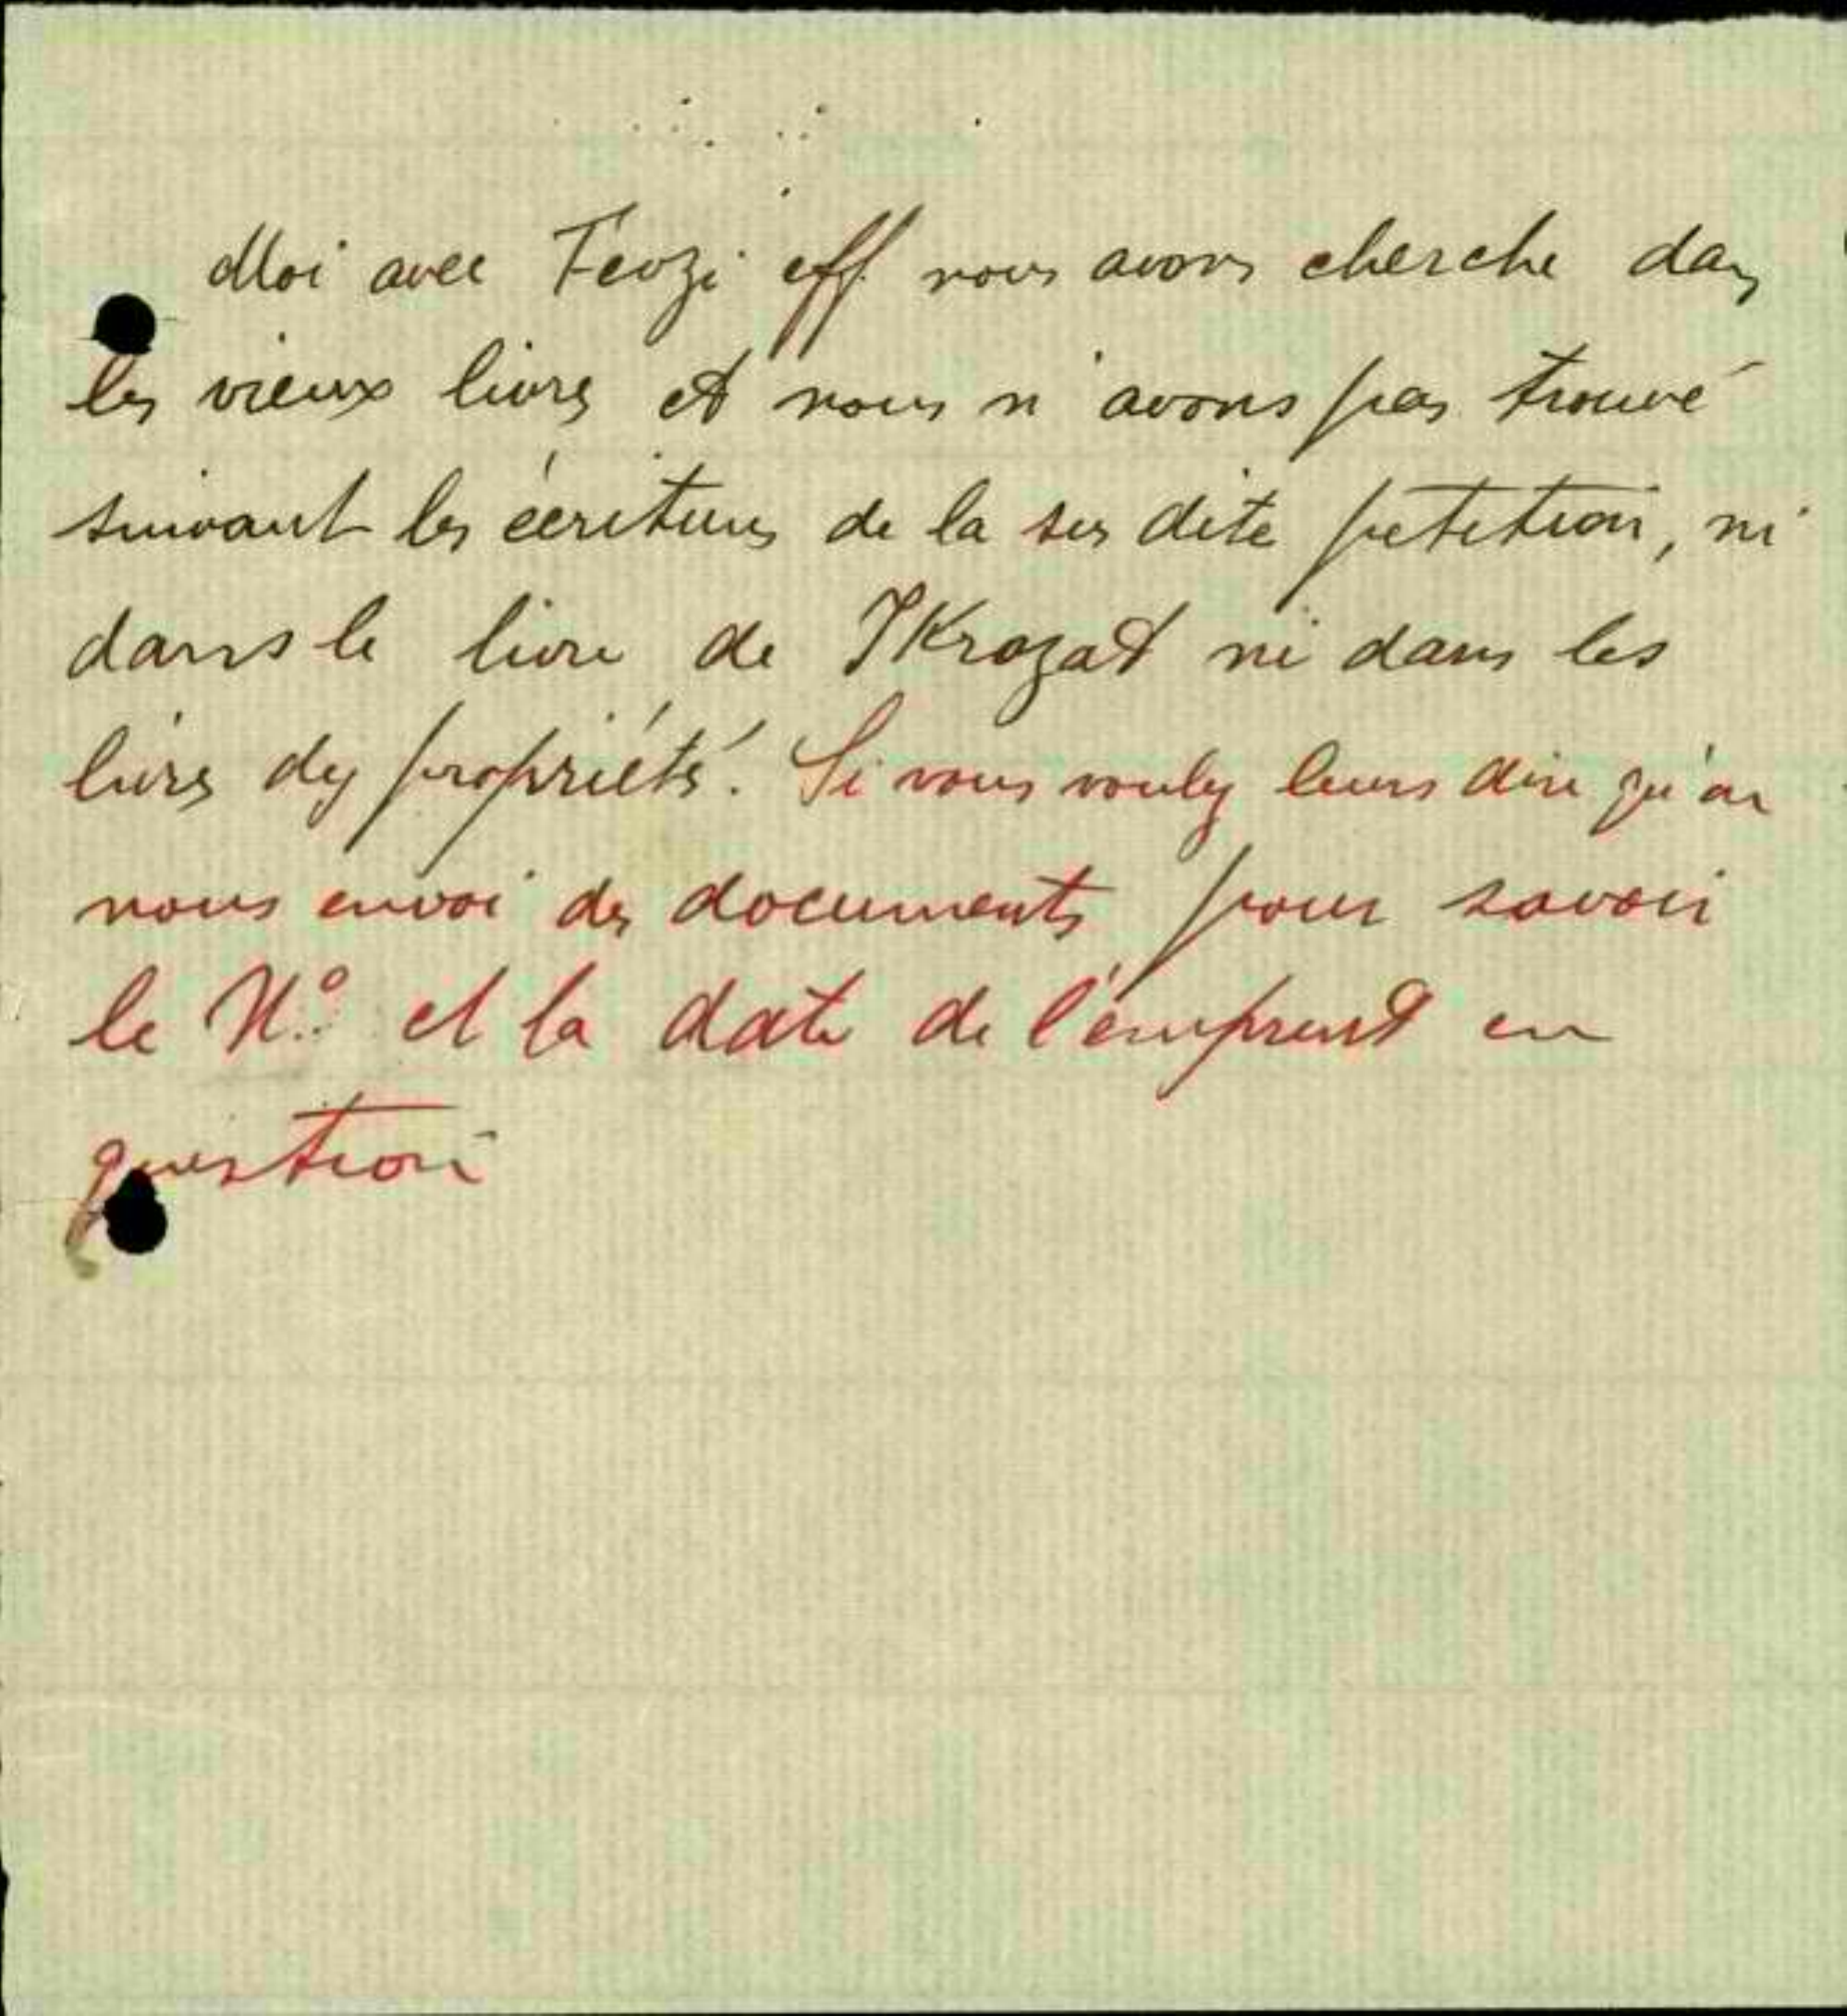 Moi avec Fevzi eff. nous avons cherche dans
les vieux livres et nous n'avons pas trouvé
suivant les écritures de la sus dite petition, ni
dans le livre de IKrazat ni dans les
livres des propriétés. Si vous voulez leurs dire qu'on
nous envoi des documents pour savoir
le N.° et la date de l'emprunt en
question